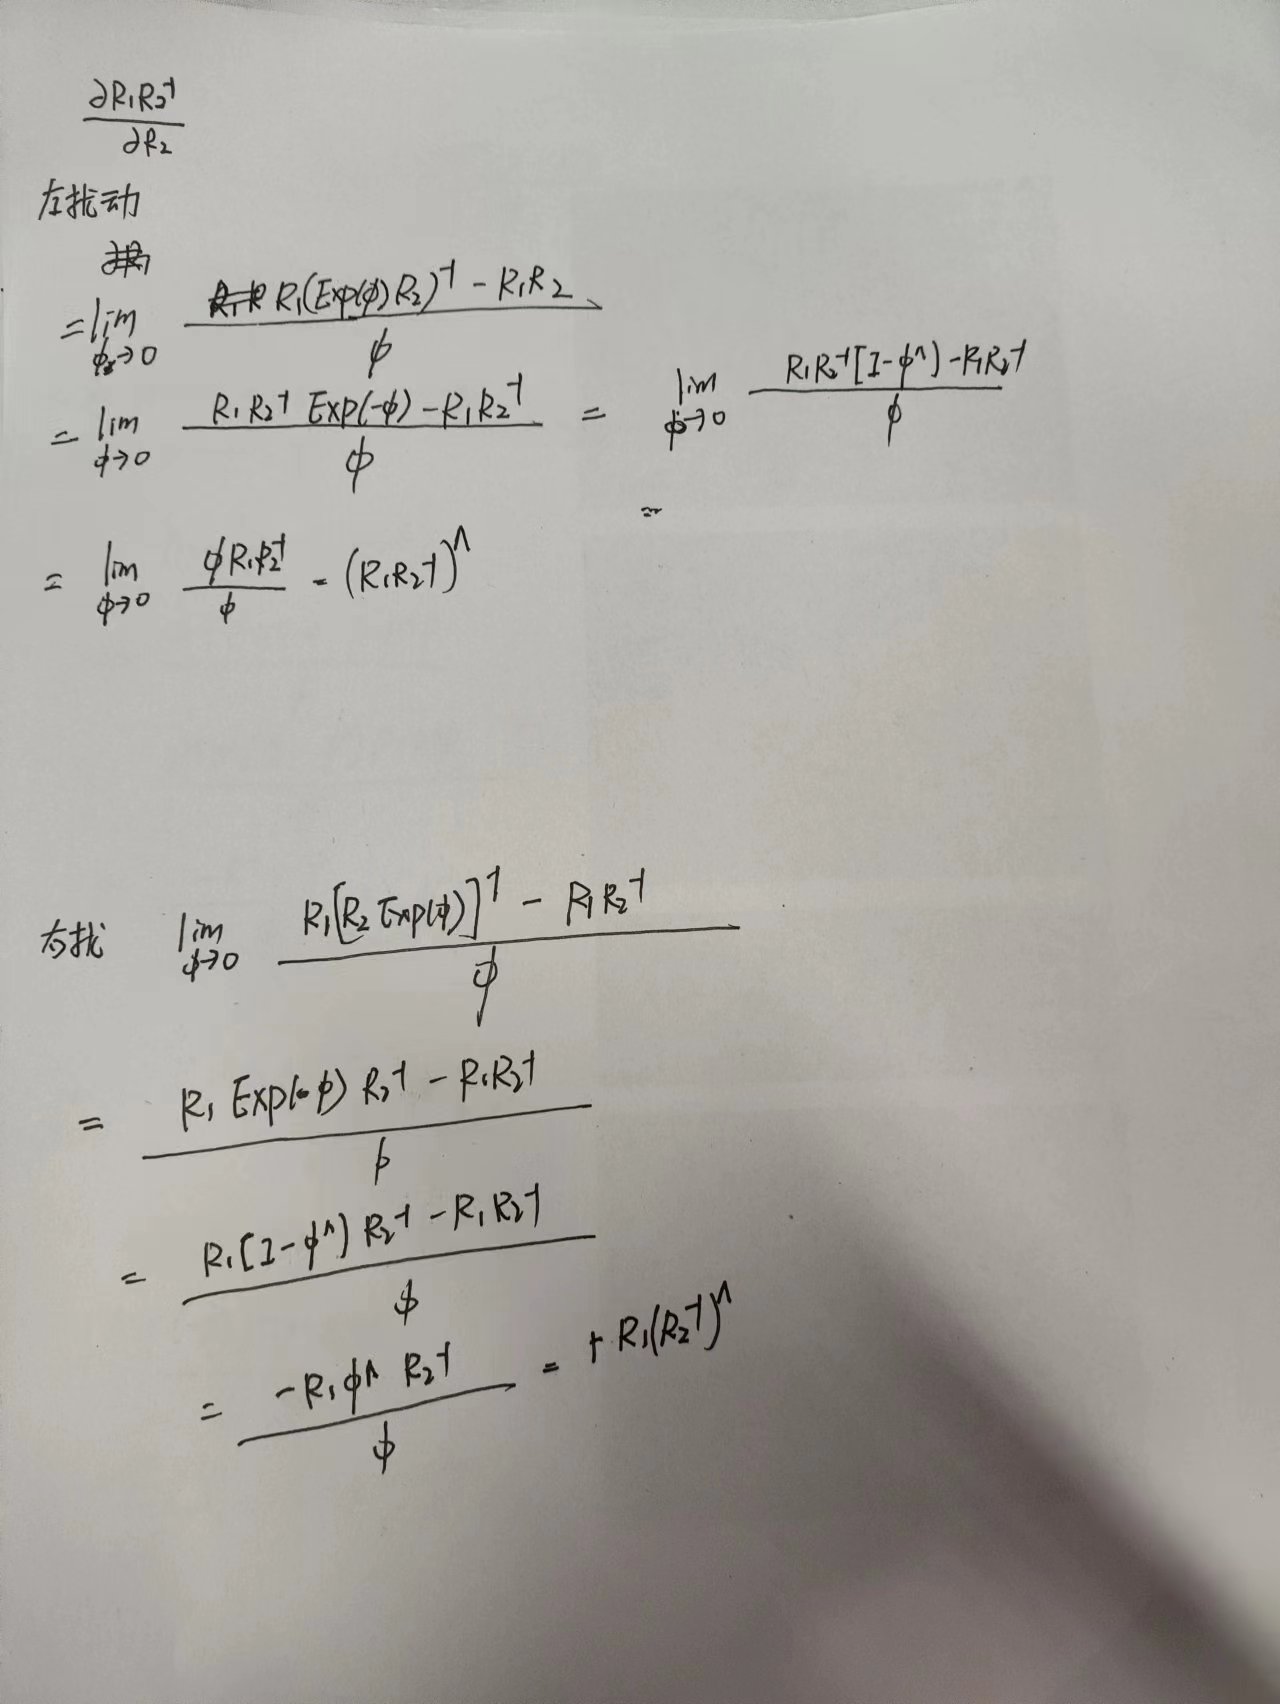 ∂R₁R₂⁻¹
∂R₂
左扰动
=lim ϕ→0 R₁(Exp(ϕ)R₂)⁻¹ - R₁R₂ / ϕ
= lim ϕ→0 R₁R₂⁻¹ Exp(-ϕ) - R₁R₂⁻¹ / ϕ = lim ϕ→0 R₁R₂⁻¹[I-ϕ^) - R₁R₂⁻¹ / ϕ
=
= lim ϕ→0 ϕR₁R₂⁻¹ / ϕ - (R₁R₂⁻¹)^
右扰 lim ϕ→0 R₁[R₂ Exp(ϕ)]⁻¹ - R₁R₂⁻¹ / ϕ
= R₁ Exp(-ϕ) R₂⁻¹ - R₁R₂⁻¹ / ϕ
= R₁[I-ϕ^) R₂⁻¹ - R₁R₂⁻¹ / ϕ
= -R₁ϕ^ R₂⁻¹ / ϕ = + R₁(R₂⁻¹)^